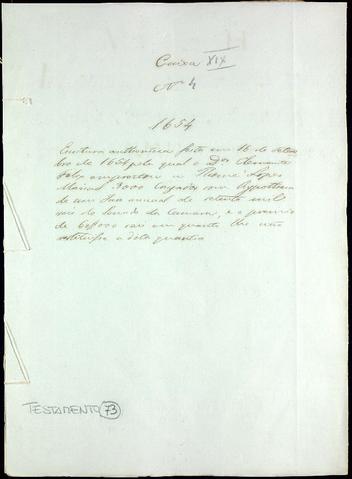 Caixa XIX
Nº 4
1654
Escritura authentica feita em 16 de setem
bro de 1654 pela qual o Clemente
Felix emprestou a Thomé Lopes
3000 cruzados com hypotheca
de um Juro annual de setenta mil
reis do fundo da Camara, e o premio
de 60$000 reis em quanto lhe não
a dita quantia
TESTAMENTO 73